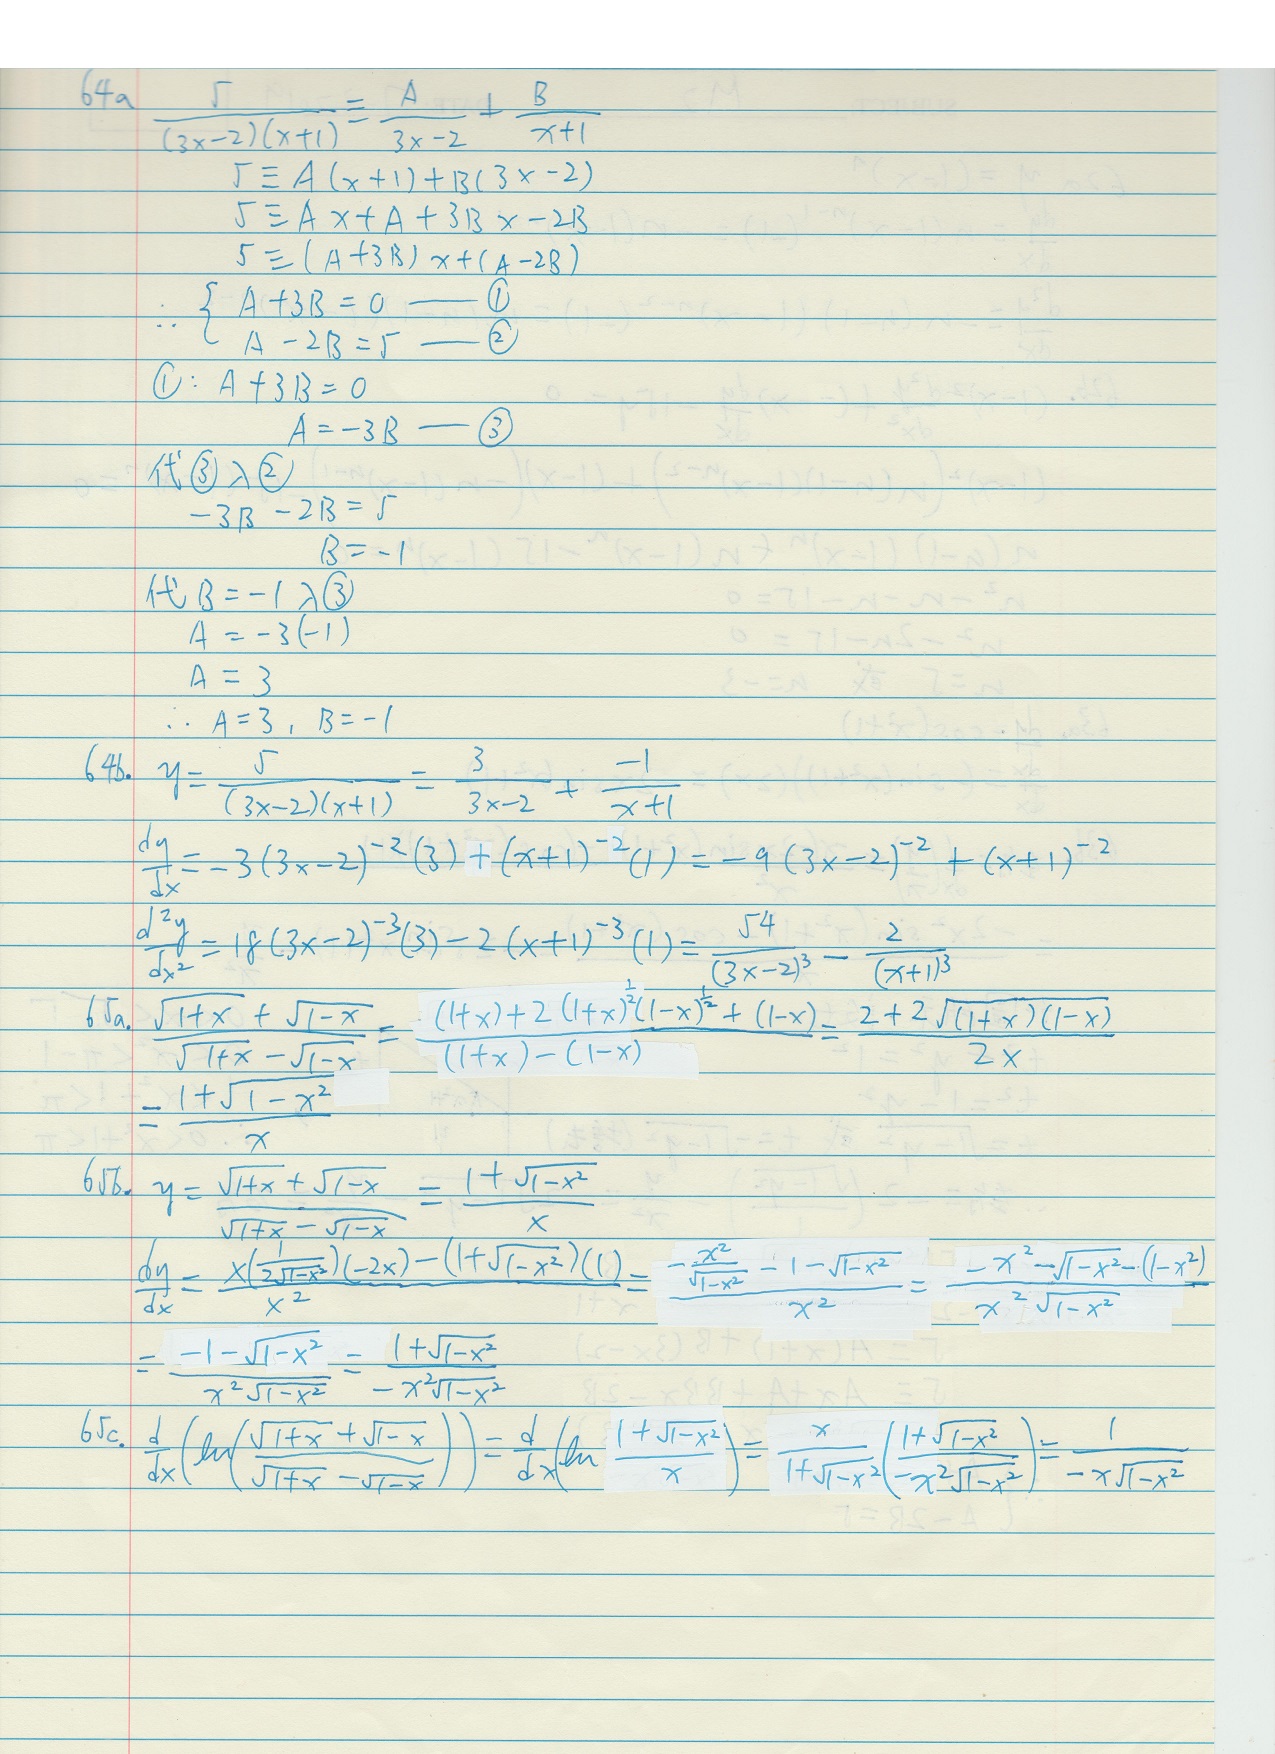 64a 5/((3x-2)(x+1)) ≡ A/(3x-2) + B/(x+1)
5 ≡ A(x+1)+B(3x-2)
5 ≡ Ax+A+3Bx-2B
5 ≡ (A+3B)x+(A-2B)
∴ { A+3B=0 —— ①
A-2B=5 —— ②
①: A+3B=0
A=-3B —— ③
代③入②
-3B-2B=5
B=-1
代B=-1入③
A=-3(-1)
A=3
∴ A=3, B=-1
64b. y = 5/((3x-2)(x+1)) = 3/(3x-2) + -1/(x+1)
dy/dx = -3(3x-2)⁻²(3)+(x+1)⁻²(1) = -9(3x-2)⁻²+(x+1)⁻²
d²y/dx² = 18(3x-2)⁻³(3)-2(x+1)⁻³(1) = 54/(3x-2)³ - 2/(x+1)³
65a. (√(1+x)+√(1-x))/(√(1+x)-√(1-x)) = ((1+x)+2(1+x)^(1/2)(1-x)^(1/2)+(1-x))/((1+x)-(1-x)) = (2+2√((1+x)(1-x)))/(2x)
= (1+√(1-x²))/x
65b. y = (√(1+x)+√(1-x))/(√(1+x)-√(1-x)) = (1+√(1-x²))/x
dy/dx = (x(1/(2√(1-x²)))(-2x)-(1+√(1-x²))(1))/x² = (-x²/√(1-x²)-1-√(1-x²))/x² = (-x²-√(1-x²)-(1-x²))/(x²√(1-x²))
= (-1-√(1-x²))/(x²√(1-x²)) = (1+√(1-x²))/(-x²√(1-x²))
65c. d/dx(ln((√(1+x)+√(1-x))/(√(1+x)-√(1-x)))) = d/dx(ln (1+√(1-x²))/x) = x/(1+√(1-x²)) ((1+√(1-x²))/(-x²√(1-x²))) = 1/(-x√(1-x²))